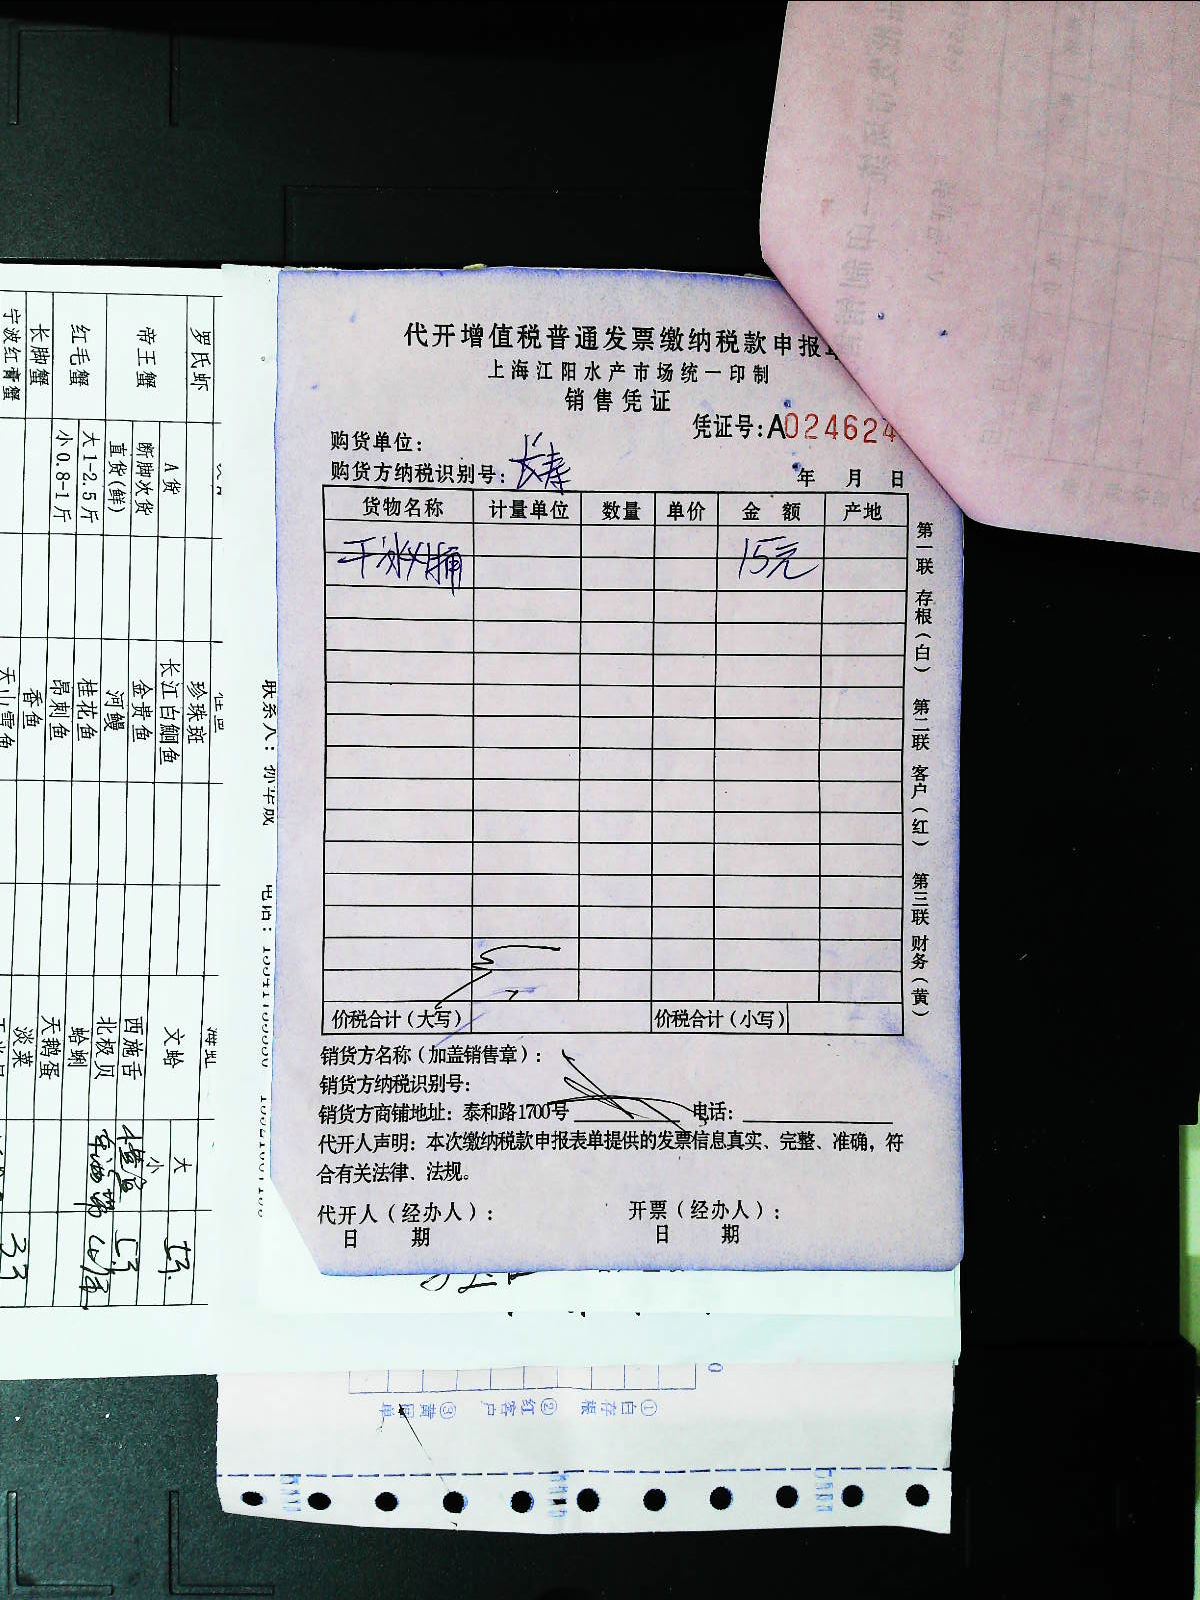 代开增值税普通发票缴纳税款申报
上海江阳水产市场统一印制
销售凭证
凭证号:A024624
购货单位:
长寿
购货方纳税识别号:
年 月 日
货物名称 计量单位 数量 单价 金 额 产地
15元
价税合计(大写) 价税合计(小写)
销货方名称(加盖销售章):
销货方纳税识别号:
销货方商铺地址:泰和路1700号 电话:
代开人声明:本次缴纳税款申报表单提供的发票信息真实、完整、准确,符
合有关法律、法规。
代开人(经办人): 开票(经办人):
日 期 日 期
第一联 存根(白) 第二联 客户(红) 第三联 财务(黄)
罗氏虾
帝王蟹
红毛蟹
长脚蟹
宁波红膏蟹
A货
断脚次货
直货(鲜)
大1-2.5斤
小0.8-1斤
珍珠斑
长江白鮰鱼
金贵鱼
河鳗
桂花鱼
昂刺鱼
香鱼
天山雪鱼
文蛤
西施舌
北极贝
蛤蜊
天鹅蛋
淡菜
大
小
33
联系人:
电话:
①白存根 ②红客户 ③黄回单